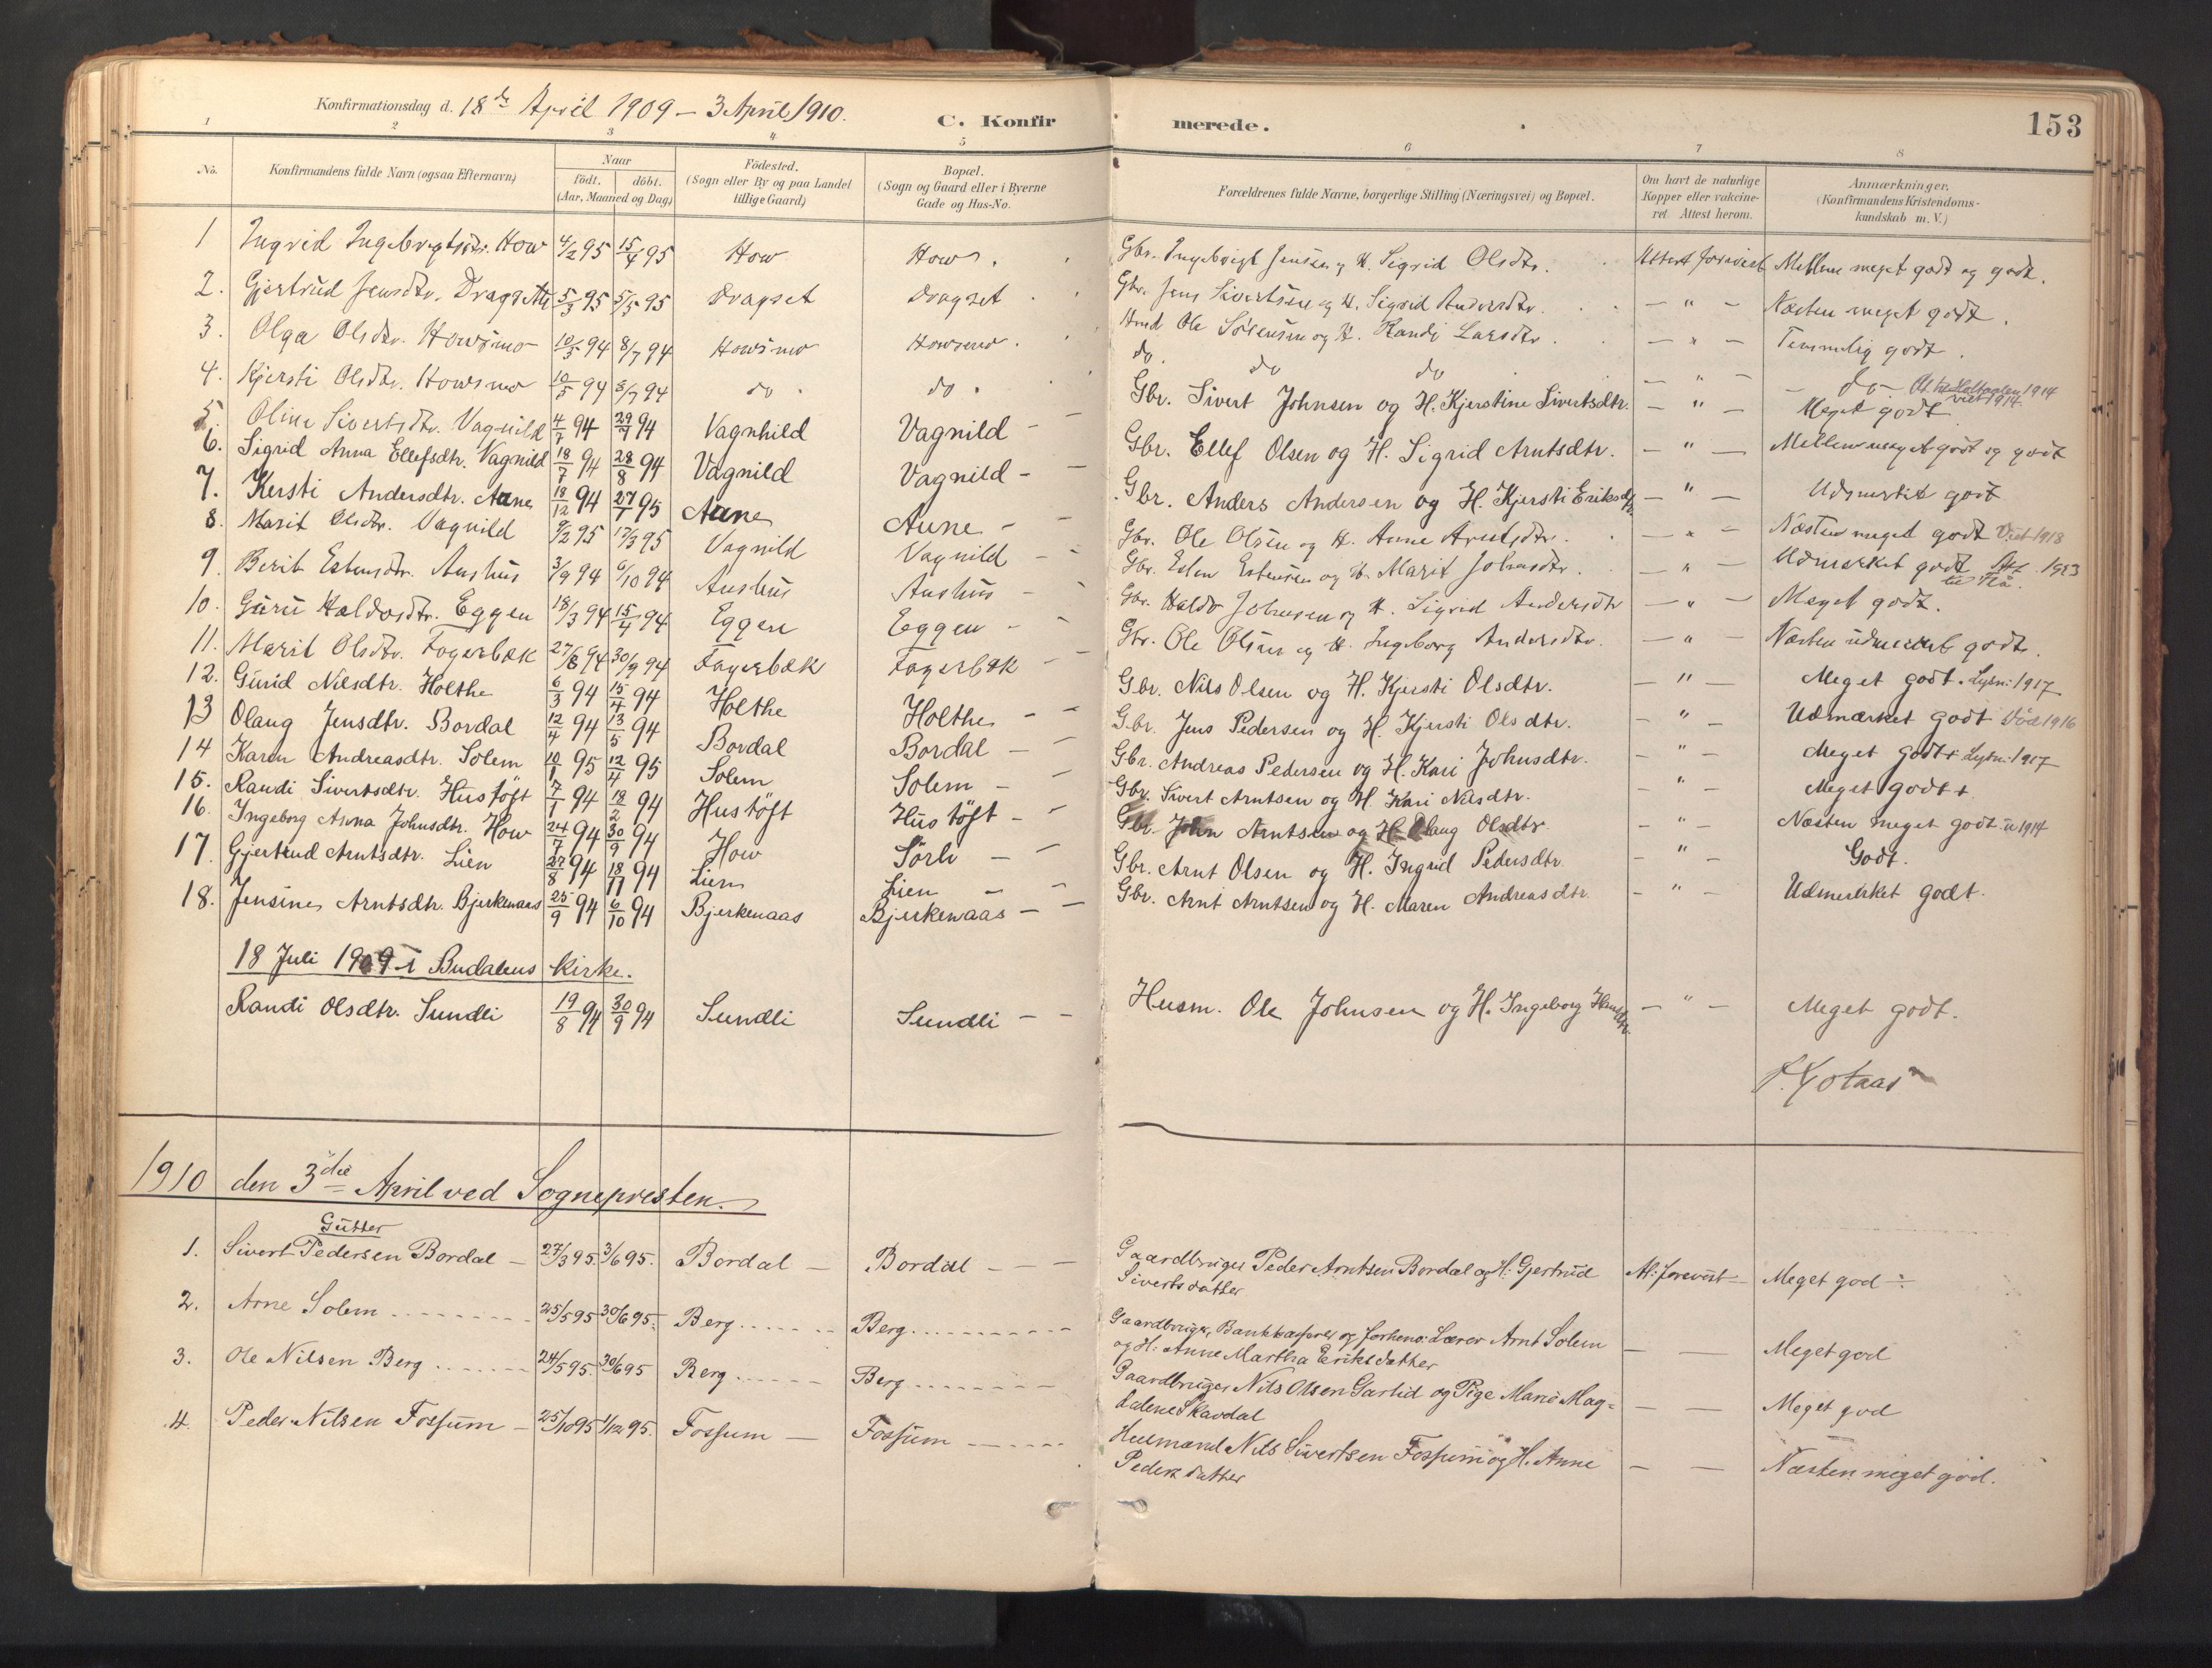 Konfirmationsdag d. 18de April 1909 – 3 April 1910.
C. Konfirmerede.
153
1 2 3 4 5 6 7 8
No. Konfirmandens fulde Navn (ogsaa Efternavn) Naar födt. döbt. (Aar, Maaned og Dag) Födested. (Sogn eller By og paa Landet tillige Gaard) Bopæl. (Sogn og Gaard eller i Byerne Gade og Hus-No. Forældrenes fulde Navne, borgerlige Stilling (Næringsvei) og Bopæl. Om havt de naturlige Kopper eller vakcineret. Attest herom. Anmærkninger. (Konfirmandens Kristendomskundskab m. V.)
1 Ingrid Ingebrigtsdtr. How 4/2 95 15/4 95 How How. Gbr. Ingebrigt Jensen og H. Sigrid Olsdtr. Attest forevist Mellem meget godt og godt.
2. Gjertrud Jensdtr. Dragset 5/3 95 5/5 95 Dragset Dragset Gbr. Jens Sivertsen og H. Sigrid Andersdtr. — " — Næsten meget godt.
3. Olga Olsdtr. Howsmo 10/5 94 8/7 94 Howsmo Howsmo. Hmd Ole Sörensen og H. Randi Larsdtr. — " — Temmelig godt.
4. Kjersti Olsdtr. Howsmo 10/5 94 8/7 94 do. do. do. do do — " — — do — At. til Holtaalen 1914 viet 1914
5. Oline Sivertsdtr. Vagnild 4/7 94 29/7 94 Vagnhild Vagnild — Gbr. Sivert Johnsen og H. Kjerstine Sivertsdtr. — " — Meget godt
6. Sigrid Anna Ellefsdtr. Vagnild 18/7 94 28/8 94 Vagnild Vagnild — Gbr. Ellef Olsen og H. Sigrid Arntsdtr. — " — Mellem meget godt og godt
7. Kersti Andersdtr. Aune 18/12 94 27/1 95 Aune Aune — Gbr. Anders Andersen og H. Kjersti Eriksdtr. — " — Udmerket godt
8. Marit Olsdtr. Vagnild 9/2 95 17/3 95 Vagnild Vagnild — Gbr. Ole Olsen og H. Anne Arntsdtr. — " — Næsten meget godt Viet 1918
9 Berit Estensdtr. Aushus 3/9 94 6/10 94 Aushus Aushus — Gbr. Esten Estensen og H. Marit Johnsdtr. — " — Udmerket godt Att. 1923 til Flå.
10. Guru Haldosdtr. Eggen 18/3 94 15/4 94 Eggen Eggen — Gbr. Haldo Johnsen og H. Sigrid Andersdtr — " — Meget godt.
11. Marit Olsdtr. Fagerbæk 27/8 94 30/9 94 Fagerbæk Fagerbæk — Gbr. Ole Olsen og H. Ingeborg Andersdtr. — " — Næsten udmerket godt.
12. Gurid Nilsdtr. Holthe 6/3 94 15/4 94 Holthe Holthe — Gbr. Nils Olsen og H. Kjersti Olsdtr. — " — Meget godt. Lysn. 1917
13 Olaug Jensdtr. Bordal 12/4 94 13/5 94 Bordal Bordal — Gbr. Jens Pedersen og H. Kjersti Olsdtr. — " — Udmærket godt Död 1916
14 Karen Andreasdtr. Solem 10/1 95 12/4 95 Solem Solem — Gbr. Andreas Pedersen og H. Kari Johnsdtr. — " — Meget godt + Lysn. 1917
15. Randi Sivertsdtr. Hustöft 7/1 94 18/2 94 Hustöft Hustöft — Gbr. Sivert Arntsen og H. Kari Nilsdtr. " Meget godt +
16. Ingeborg Anna Johnsdtr. How 24/7 94 30/9 94 How Sörli — Gbr. John Arntsen og H. Olaug Olsdtr. — " — Næsten meget godt u 1914
17. Gjertrud Arntsdtr. Lien 27/8 94 18/11 94 Lien Lien — Gbr. Arnt Olsen og H. Ingrid Pedersdtr. — " — Godt.
18. Jensine Arntsdtr. Bjerkenaas 25/9 94 6/10 94 Bjerkenaas Bjerkenaas — Gbr. Arnt Arntsen og H. Maren Andreasdtr. — " — Udmerket godt.
18 Juli 1909 i Budalens kirke.
Randi Olsdtr. Sundli 19/8 94 30/9 94 Sundli Sundli — Husm. Ole Johnsen og H. Ingeborg — " — Meget godt.
1910 den 3die April ved Sognepresten.
Gutter
1. Sivert Pedersen Bordal — 27/3 95. 3/6 95. Bordal — Bordal — Gaardbruger Peder Arntsen Bordal og H. Gjertrud Sivertsdatter At. forevist — Meget god ÷
2. Arne Solem 25/5 95 30/6 95. Berg Berg Gaardbruger, Bankkasserer og forhenv. Lærer Arnt Solem og H. Anne Martha Eriksdatter — — Meget god
3. Ole Nilsen Berg 24/5 95. 30/6 95 Berg Berg Gaardbruger Nils Olsen Garlid og Pige Marie Magdalene Skavdal — — Meget god
4. Peder Nilsen Fossum — 25/10 95 1/12 95. Fossum — Fossum — Husmand Nils Sivertsen Fossum og H. Anne Pedersdatter — — Næsten meget god.